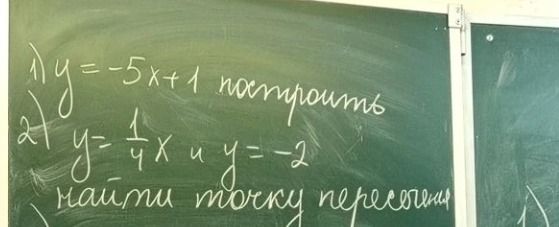 1) y = -5x + 1 построить
2) y = 1/4 x и y = -2
найти точку пересечения